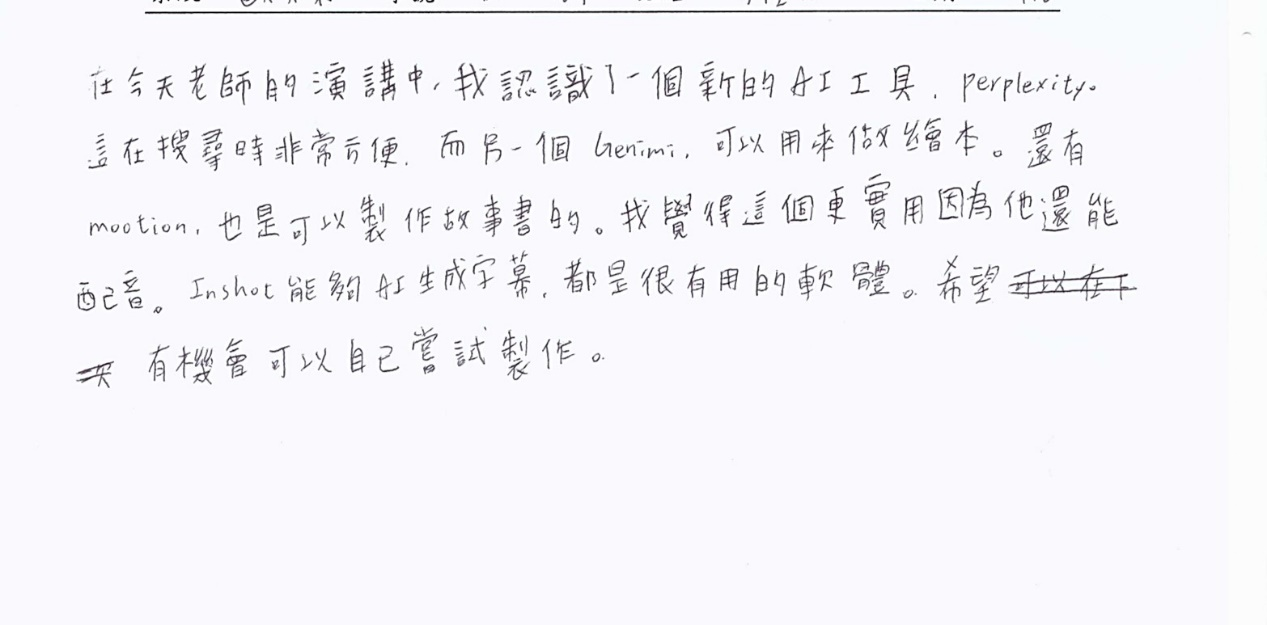 在今天老師的演講中,我認識了一個新的AI工具,perplexity。
這在搜尋時非常方便,而另一個Genimi,可以用來做繪本。還有
mootion,也是可以製作故事書的。我覺得這個更實用因為他還能
配音。Inshot能夠AI生成字幕,都是很有用的軟體。希望可以在下
次有機會可以自己嘗試製作。